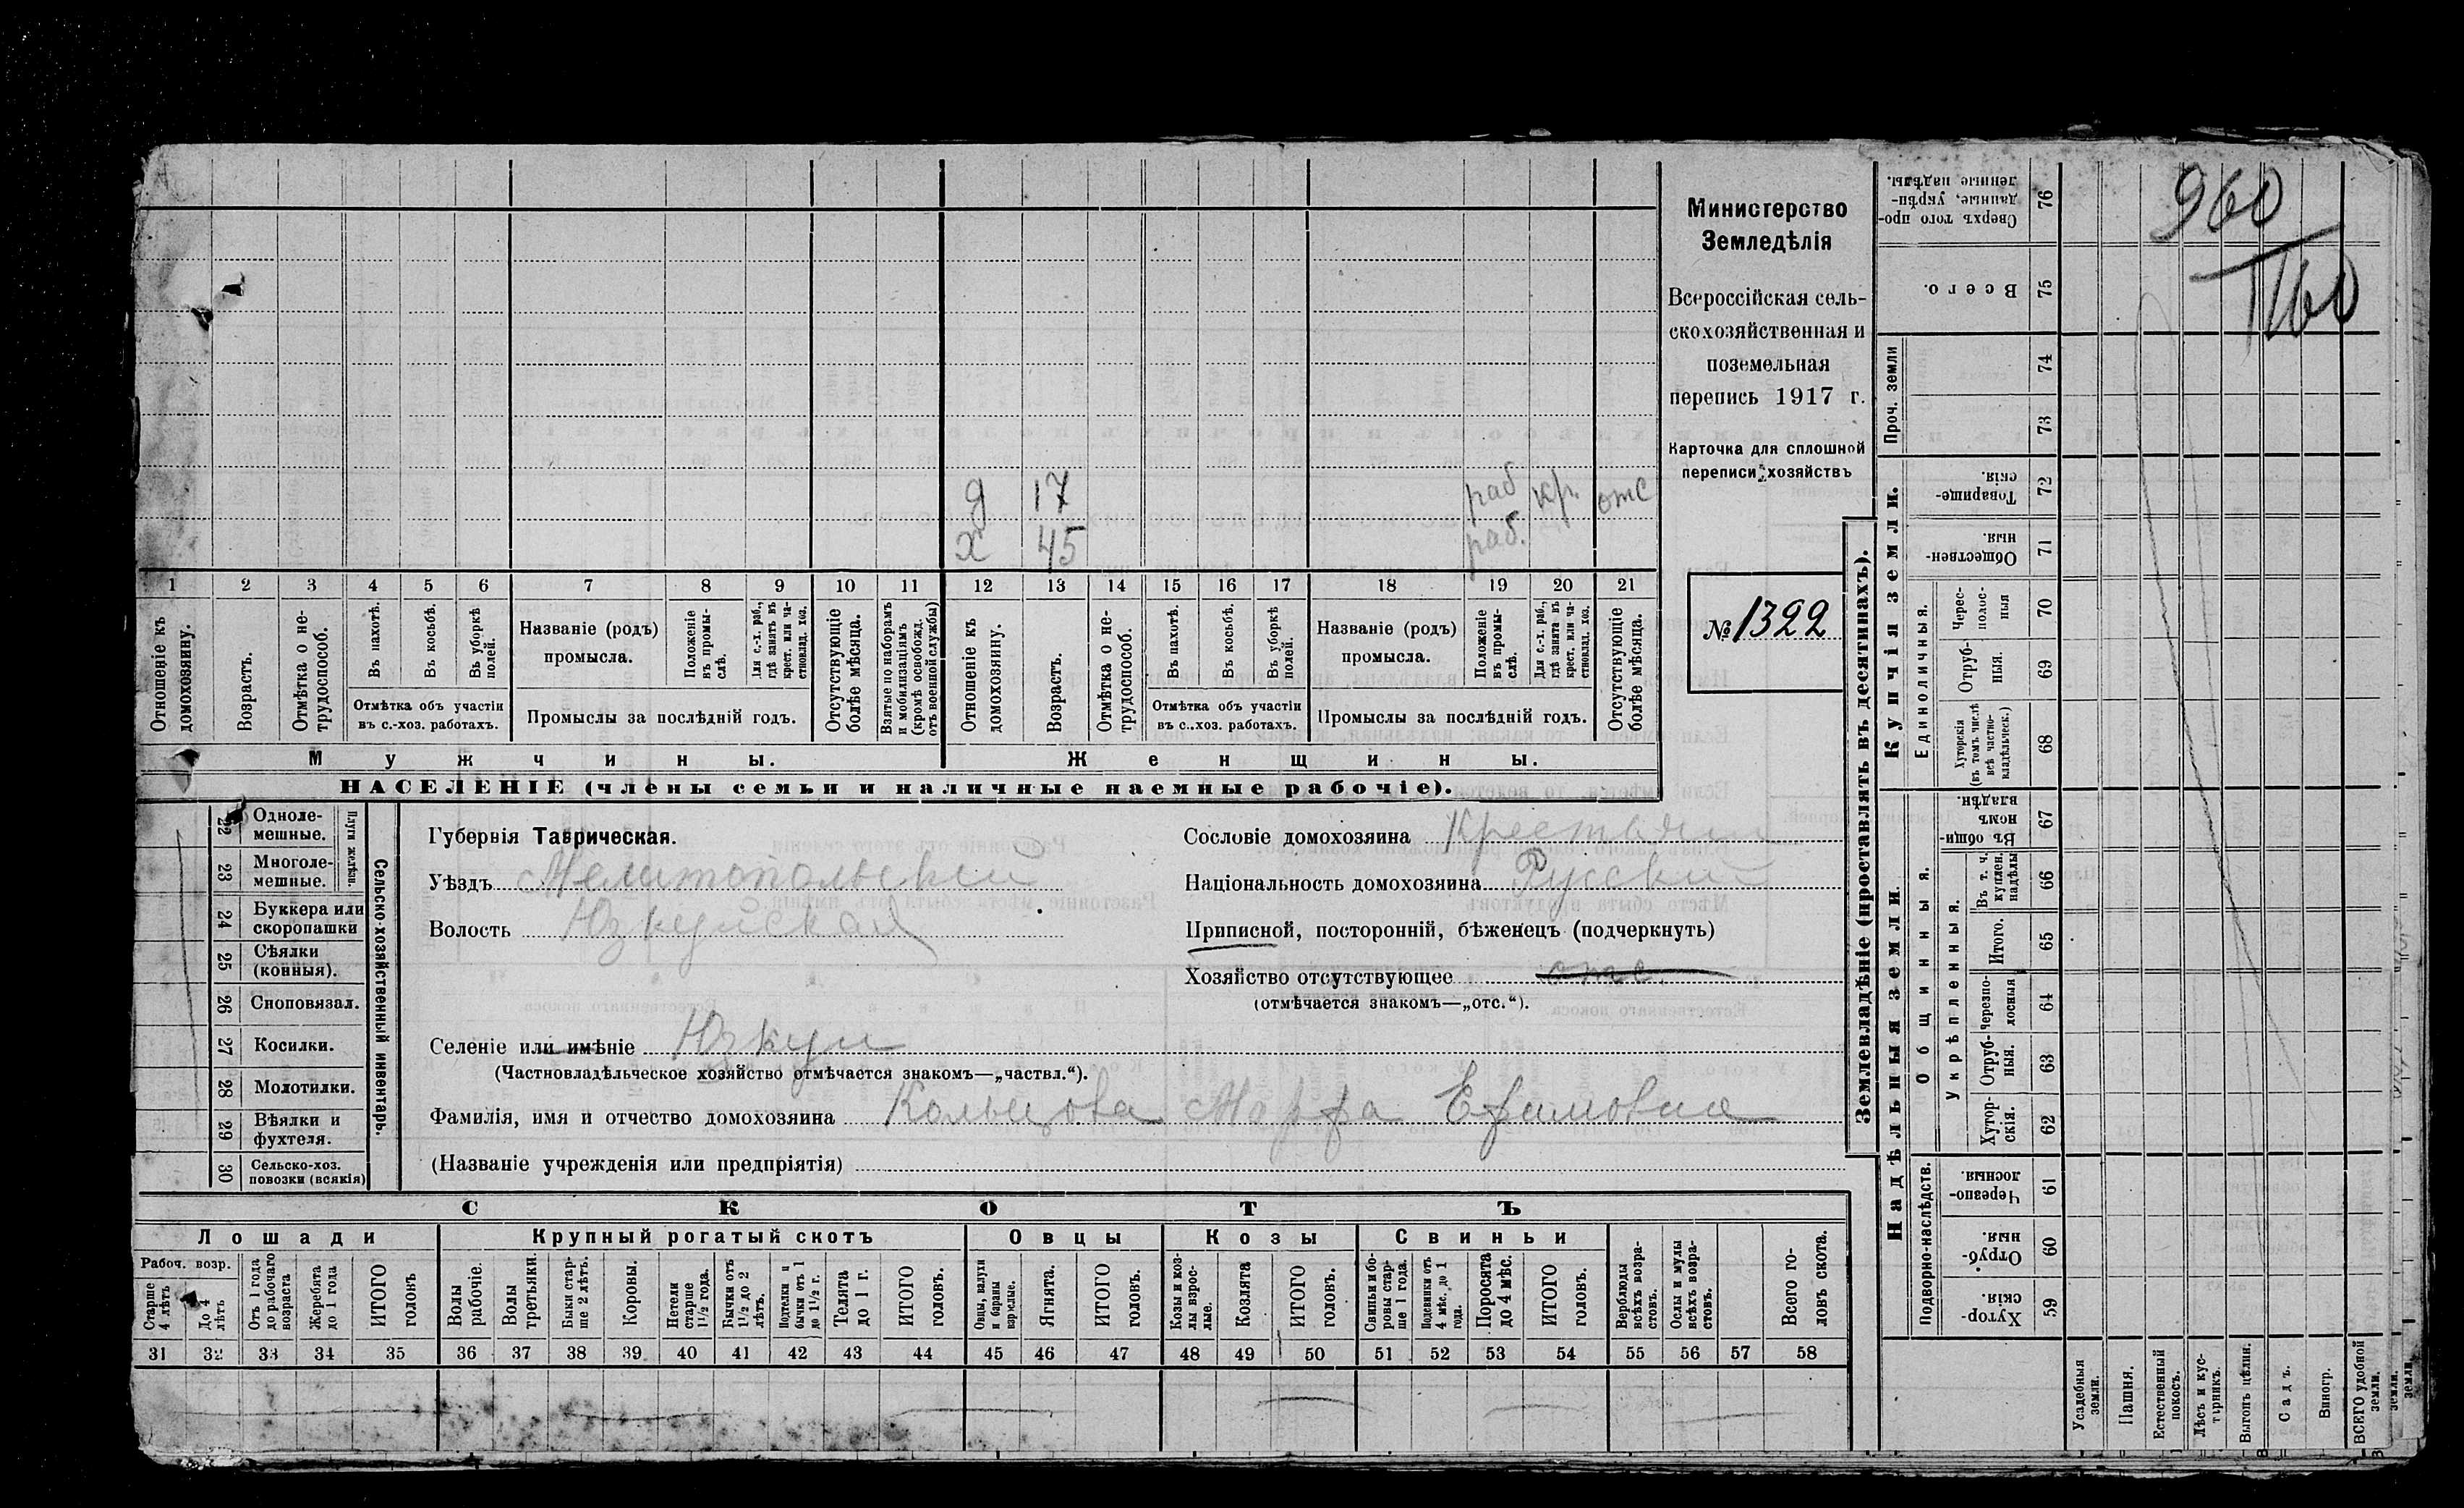 Министерство
Земледѣлія
Всероссійская сель-
скохозяйственная и
поземельная
перепись 1917 г.
Карточка для сплошной
переписи хозяйствъ
№ 1322
960
1160
д 17 раб кр. отс
х 45 раб.
1 2 3 4 5 6 7 8 9 10 11 12 13 14 15 16 17 18 19 20 21
Отношеніе къ домохозяину.
Возрастъ.
Отмѣтка о не-трудоспособ.
Въ пахотѣ.
Въ косьбѣ.
Въ уборкѣ полей.
Отмѣтка объ участіи
въ с.-хоз. работахъ.
Названіе (родъ)
промысла.
Положеніе въ промы-слѣ.
Для с.-х. раб., гдѣ занятъ въ крест. или ча-стновлад. хоз.
Промыслы за послѣдній годъ.
Отсутствующіе болѣе мѣсяца.
Взятые по наборамъ и мобилизаціямъ (кромѣ освобожд. отъ военной службы)
Отношеніе къ домохозяину.
Возрастъ.
Отмѣтка о не-трудоспособ.
Въ пахотѣ.
Въ косьбѣ.
Въ уборкѣ полей.
Отмѣтка объ участіи
въ с..хоз. работахъ.
Названіе (родъ)
промысла.
Положеніе въ промы-слѣ.
Для с.-х. раб., гдѣ занята въ крест. или ча-стновлад. хоз.
Промыслы за послѣдній годъ.
Отсутствующіе болѣе мѣсяца.
Мужчины. Женщины.
НАСЕЛЕНІЕ (члены семьи и наличные наемные рабочіе).
22 Одноле-мешные.
23 Многоле-мешные.
Плуги желѣзн.
24 Буккера или скоропашки
25 Сѣялки (конныя).
26 Сноповязал.
27 Косилки.
28 Молотилки.
29 Вѣялки и фухтеля.
30 Сельско-хоз. повозки (всякія)
Сельско-хозяйственный инвентарь.
Губернія Таврическая.
Уѣздъ Мелитопольскій
Волость Юзкуйская
Сословіе домохозяина Крестьянин
Національность домохозяина Русскій
Приписной, посторонній, бѣженецъ (подчеркнуть)
Хозяйство отсутствующее отс.
(отмѣчается знакомъ—„отс.“).
Селеніе или имѣніе Юзкуи
(Частновладѣльческое хозяйство отмѣчается знакомъ—„частвл.“).
Фамилія, имя и отчество домохозяина Кольцова Марфа Ефимовна
(Названіе учрежденія или предпріятія)
СКОТЪ
Лошади Крупный рогатый скотъ Овцы Козы Свиньи
Рабоч. возр.
Старше 4 лѣтъ
До 4 лѣтъ
Отъ 1 года до рабочаго возраста
Жеребята до 1 года
ИТОГО головъ
Волы рабочіе.
Волы третьяки.
Быки стар-ше 2 лѣтъ.
Коровы.
Нетели старше 1½ года.
Бычки отъ 1½ до 2 лѣтъ.
Подтелки и бычки отъ 1 до 1½ г.
Телята до 1 г.
ИТОГО головъ.
Овцы, валухи и бараны взрослые.
Ягнята.
ИТОГО головъ.
Козы и коз-лы взрос-лые.
Козлята
ИТОГО головъ.
Свиньи и бо-ровы стар-ше 1 года.
Подсвинки отъ 4 мѣс. до 1 года.
Поросята до 4 мѣс.
ИТОГО головъ.
Верблюды всѣхъ возра-стовъ.
Ослы и мулы всѣхъ возра-стовъ.
Всего го-ловъ скота.
31 32 33 34 35 36 37 38 39 40 41 42 43 44 45 46 47 48 49 50 51 52 53 54 55 56 57 58
Землевладѣніе (проставлять въ десятинахъ).
Надѣльныя земли.
Купчія земли.
Проч. земли
Подворно-наслѣдств.
Общинныя.
Укрѣпленныя.
Единоличныя.
76 Сверхъ того про-данные, укрѣп-ленные надѣлы.
75 Всего.
74
73
72 Товарище-скія.
71 Обществен-ныя.
70 Черес-полос-ныя
69 Отруб-ныя.
68 Хуторскія (въ томъ числѣ всѣ частно-владѣльческ.)
67 Въ общи-номъ владѣн.
66 Въ т. ч. куплен. надѣлы
65 Итого.
64 Черезпо-лосныя
63 Отруб-ныя.
62 Хутор-скія.
61 Черезпо-лосныя.
60 Отруб-ныя.
59 Хутор-скія.
Усадебныя земли.
Пашня.
Естественный покосъ.
Лѣсъ и кус-тарникъ.
Выгонъ цѣлин.
Садъ.
Виногр.
ВСЕГО удобной земли.